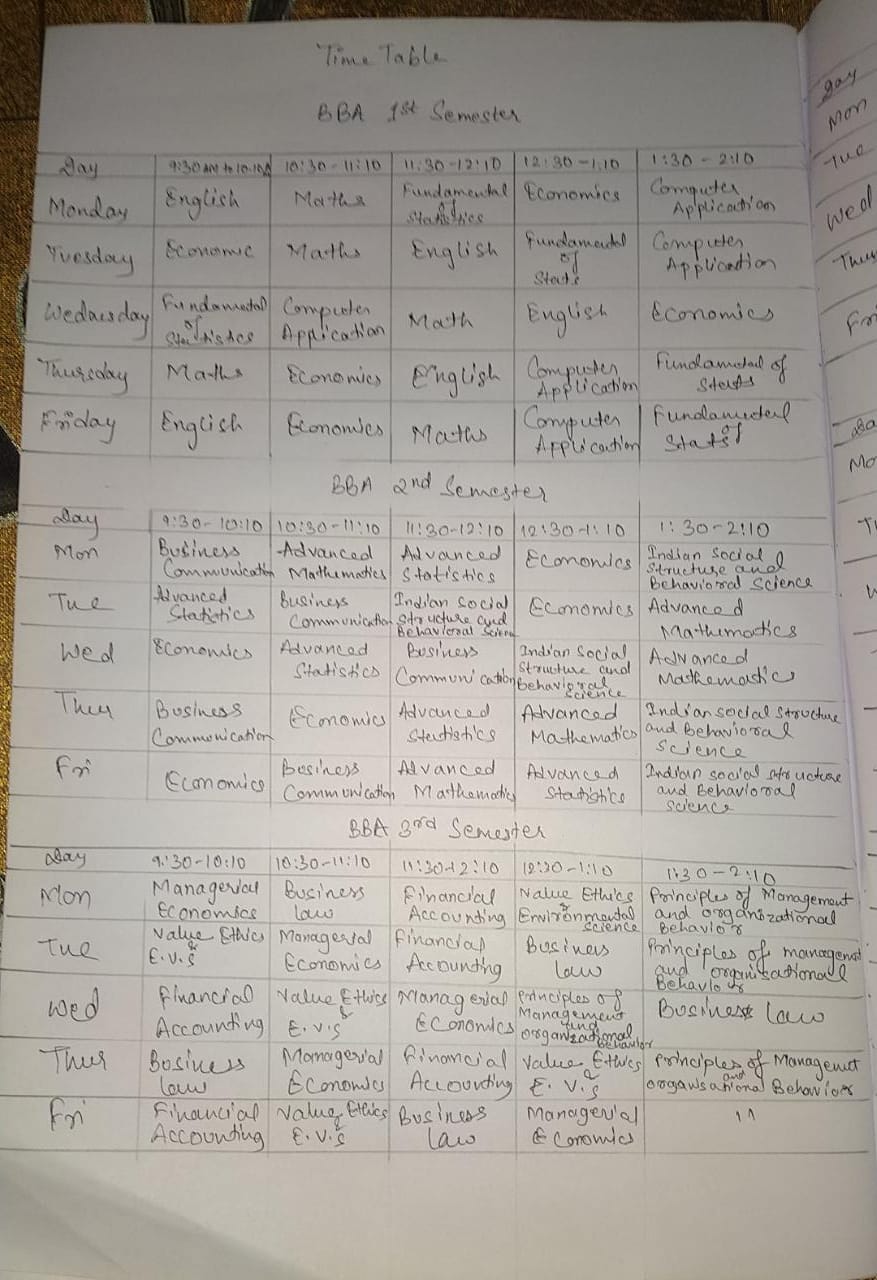 Time Table
BBA 1st Semester
Day 9:30 AM to 10:10 10:30-11:10 11:30-12:10 12:30-1:10 1:30-2:10
Monday English Maths Fundamental of Statistics Economics Computer Application
Tuesday Economic Maths English Fundamental of Stats Computer Application
Wednesday Fundamental of Statistics Computer Application Math English Economics
Thursday Maths Economics English Computer Application Fundamental of Stats
Friday English Economics Maths Computer Application Fundamental of Stats
BBA 2nd Semester
Day 9:30-10:10 10:30-11:10 11:30-12:10 12:30-1:10 1:30-2:10
Mon Business Communication Advanced Mathematics Advanced Statistics Economics Indian Social Structure and Behavioral Science
Tue Advanced Statistics Business Communication Indian Social Structure and Behavioral Science Economics Advanced Mathematics
Wed Economics Advanced Statistics Business Communication Indian Social Structure and Behavioral Science Advanced Mathematics
Thu Business Communication Economics Advanced Statistics Advanced Mathematics Indian social Structure and Behavioral Science
Fri Economics Business Communication Advanced Mathematics Advanced Statistics Indian social structure and Behavioral science
BBA 3rd Semester
Day 9:30-10:10 10:30-11:10 11:30-12:10 12:30-1:10 1:30-2:10
Mon Managerial Economics Business law Financial Accounting Value Ethics & Environmental Science Principles of Management and organizational Behavior
Tue Value Ethics & E.V.S Managerial Economics Financial Accounting Business law Principles of management and organisational Behavior
Wed Financial Accounting Value Ethics & E.V.S Managerial Economics Principles of Management and organizational behavior Business law
Thur Business law Managerial Economics Financial Accounting Value Ethics & E.V.S Principles of Management and organisational Behavior
Fri Financial Accounting Value Ethics & E.V.S Business law Managerial Economics 11
Day
Mon
Tue
Wed
Thur
Fri